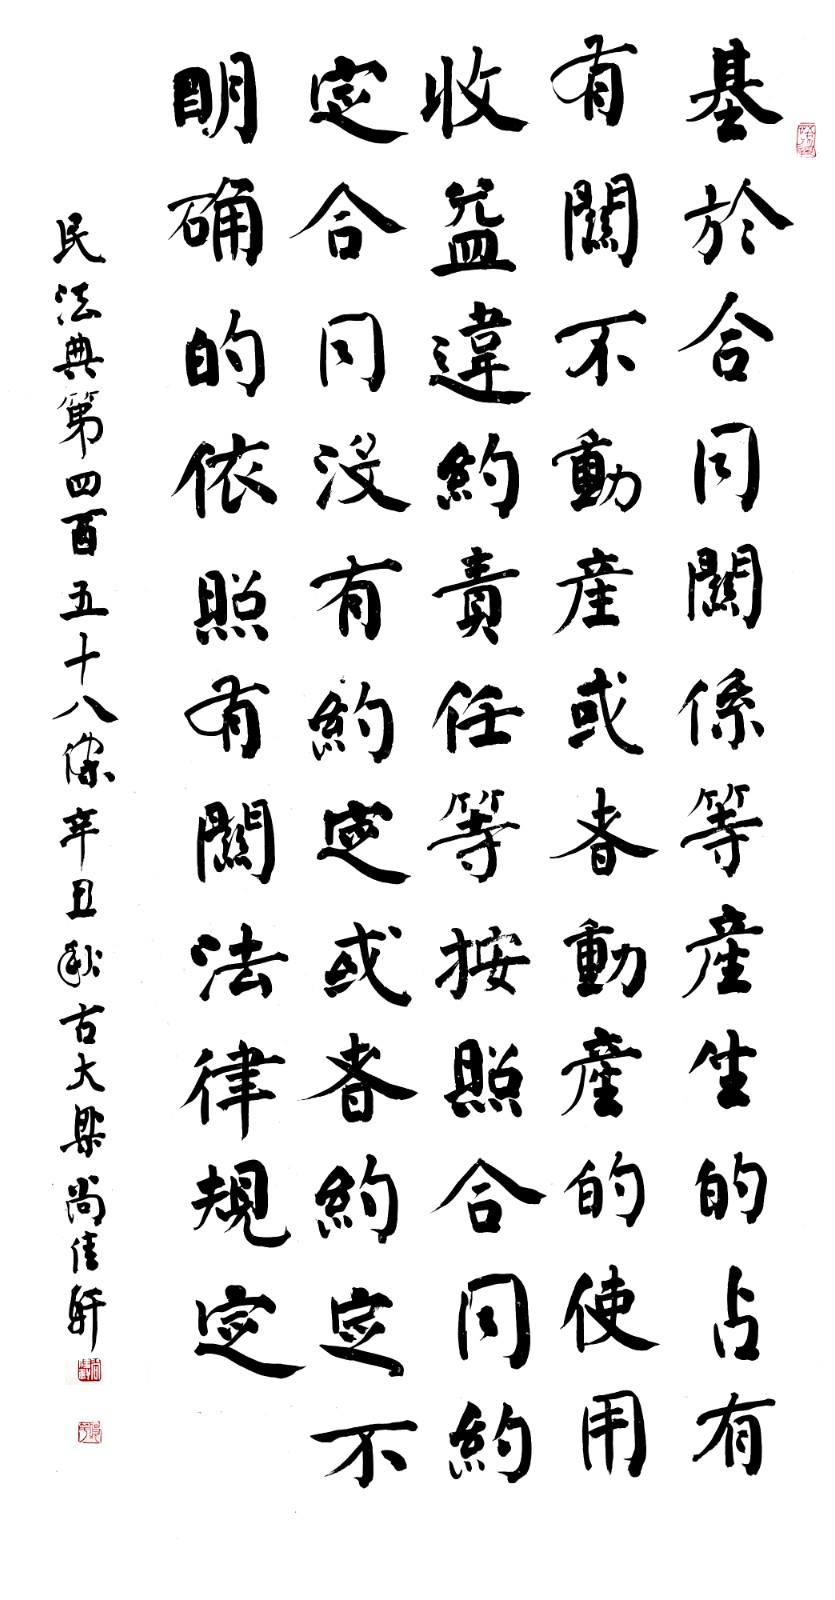 基於合同關係等產生的占有
有關不動產或者動產的使用
收益違約責任等按照合同約
定合同没有約定或者約定不
明确的依照有關法律規定
民法典第四百五十八條辛丑秋古大梁尚佳軒